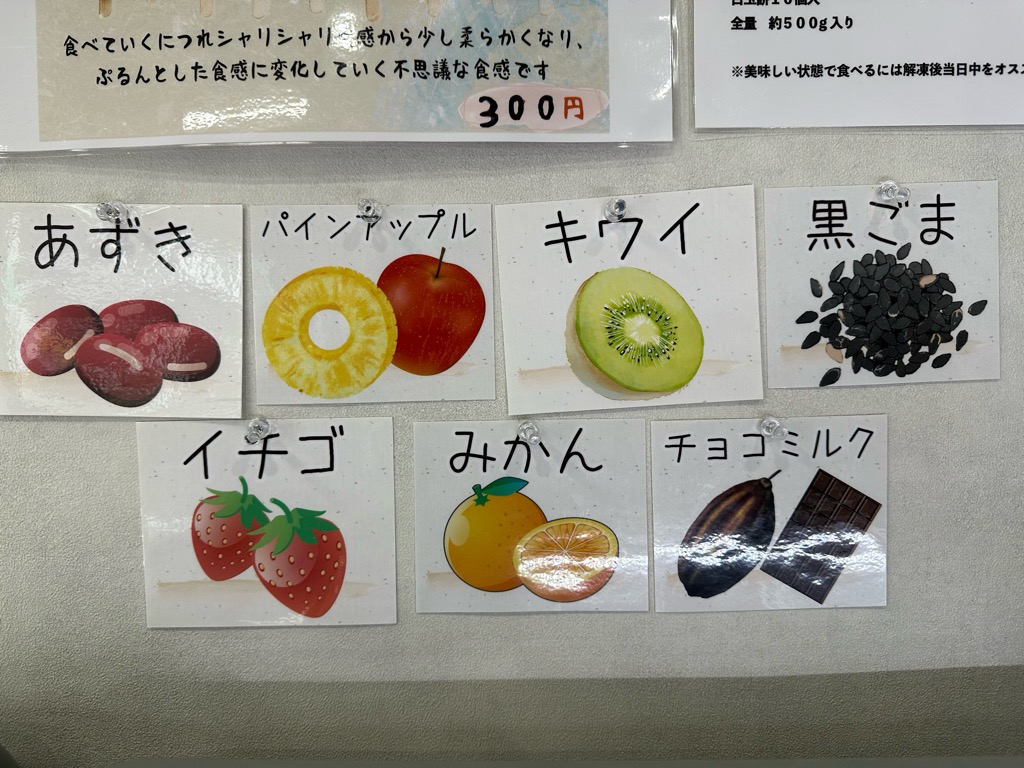 食べていくにつれシャリシャリ食感から少し柔らかくなり、
ぷるんとした食感に変化していく不思議な食感です
300円
全量 約500g入り
※美味しい状態で食べるには解凍後当日中をオス
あずき
パインアップル
キウイ
黒ごま
イチゴ
みかん
チョコミルク